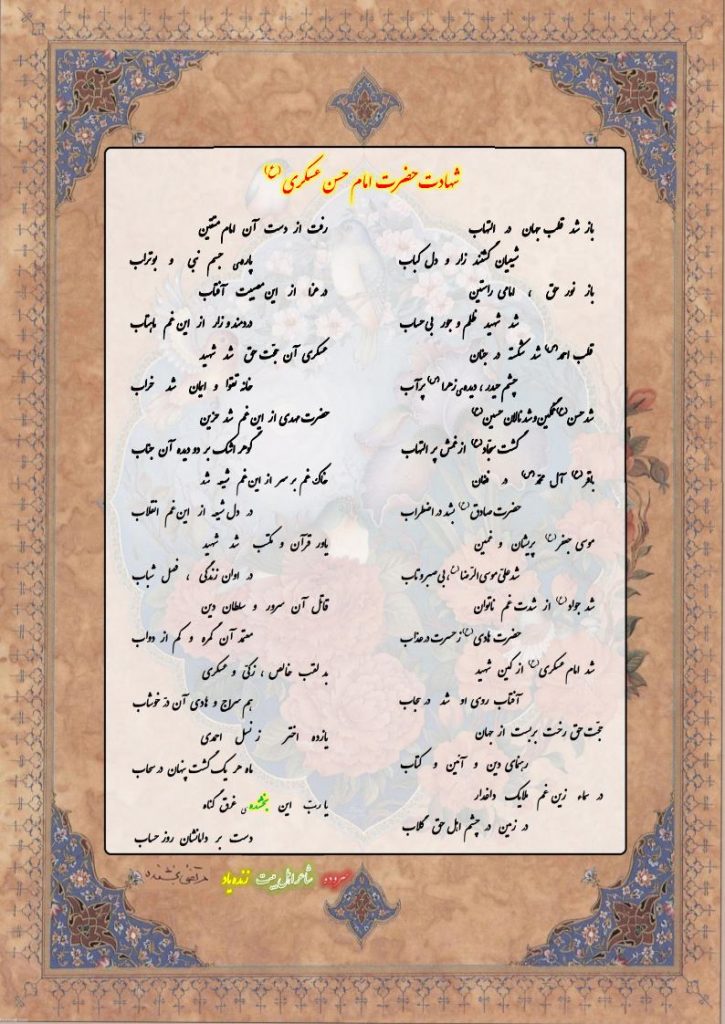 شهادت حضرت امام حسن عسکری (ع)
باز شد قلب جهان در التهاب
شیعیان گشتند زار و دل کباب
باز نور حق ، امامی راستین
شد شهید ظلم و جور بی حساب
قلب احمد(ص) شد شکسته در جنان
چشم حیدر ، دیده ی زهرا(س) پرآب
شد حسن(ع) غمگین و شد نالان حسین(ع)
گشت سجاد(ع) از غمش پر التهاب
باقر(ع) آل محمد(ص) در فغان
حضرت صادق(ع) بشد در اضطراب
موسی جعفر(ع) پریشان و غمین
شد علی موسی الرّضا(ع)، بی صبر و تاب
شد جواد(ع) از شدت غم ناتوان
حضرت هادی(ع) ز حسرت در عذاب
شد امام عسکری(ع) از کین شهید
آفتاب روی او شد در حجاب
حجّت حق رخت بربست از جهان
رهنمای دین و آئین و کتاب
در سماء زین غم ملایک داغدار
در زمین در چشم اهل حق گلاب
رفت از دست آن امام متقین
پاره ی جسم نبی و بوتراب
در عزا از این مصیبت آفتاب
دردمند و زار از این غم ماهتاب
عسکری آن حجّت حق شد شهید
خانه تقوا و ایمان شد خراب
حضرت مهدی از این غم شد حزین
گوهر اشک بر دو دیده آن جناب
خاک غم بر سر از این غم شیعه شد
در دل شیعه از این غم انقلاب
یاور قرآن و مکتب شد شهید
در اوان زندگی ، فصل شباب
قاتل آن سرور و سلطان دین
معتمد آن گمره و کم از دواب
بد لقب خالص ، زکیّ و عسکری
هم سراج و هادی آن درّ خوشاب
یازده اختر ز نسل احمدی
ماه هر یک گشت پنهان در سحاب
یا ربّ این بخشنده ی غرق گناه
دست بر دامانشان روز حساب
سروده شاعر اهل بیت زنده یاد